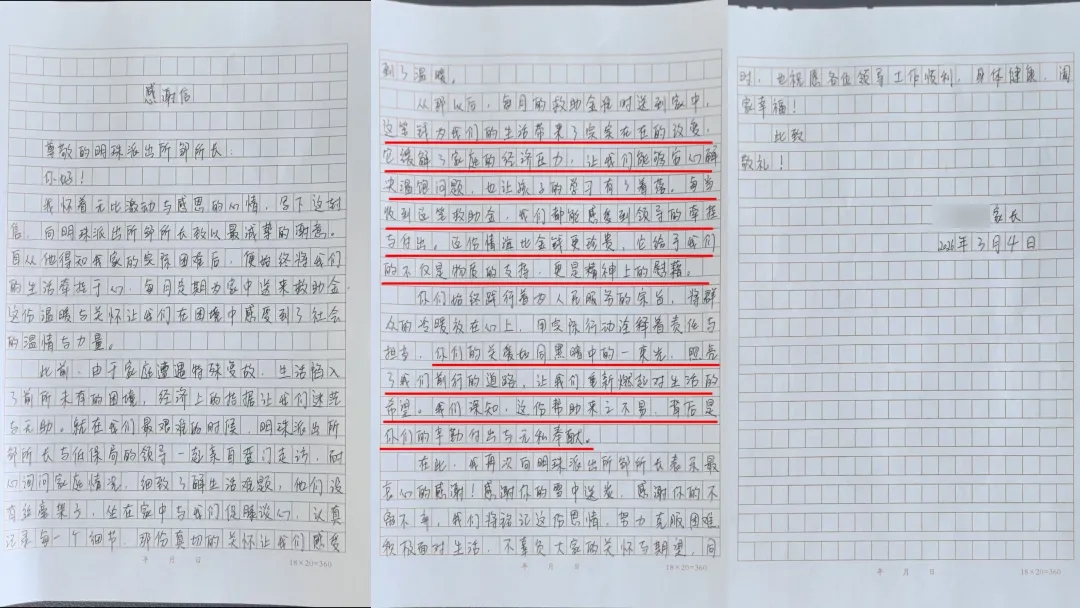 感谢信
尊敬的明珠派出所邹所长：
你好！
我怀着无比激动与感恩的心情，写下这封
信，向明珠派出所邹所长致以最诚挚的谢意。
自从他得知我家的实际困难后，便始终将我们
的生活牵挂于心，每月定期为家中送来救助金，
这份温暖与关怀让我们在困境中感受到了社会
的温情与力量。
此前，由于家庭遭遇特殊变故，生活陷入
了前所未有的困境，经济上的拮据让我们迷茫
与无助。就在我们最艰难的时候，明珠派出所
邹所长与低保局的领导一起亲自登门走访，耐
心询问家庭情况，细致了解生活难题，他们没
有丝毫架子，坐在家中与我们促膝谈心，认真
记录每一个细节，那份真切的关怀让我们感受
年 月 日
18×20=360
到了温暖。
从那以后，每月的救助金准时送到家中，
这笔钱为我们的生活带来了实实在在的改变，
它缓解了家庭的经济压力，让我们能够安心解
决温饱问题，也让孩子的学习有了着落。每当
收到这笔救助金，我们都能感受到领导的牵挂
与付出。这份情谊比金钱更珍贵，它给予我们
的不仅是物质的支持，更是精神上的慰藉。
你们始终践行着为人民服务的宗旨，将群
众的冷暖放在心上，用实际行动诠释着责任与
担当，你们的关爱如同黑暗中的一束光，照亮
了我们前行的道路，让我们重新燃起对生活的
希望。我们深知，这份帮助来之不易，背后是
你们的辛勤付出与无私奉献。
在此，我再次向明珠派出所邹所长表示最
衷心的感谢！感谢你的雪中送炭，感谢你的不
辞辛，我们将铭记这份恩情，努力克服困难，
积极面对生活，不辜负大家的关怀与期望，同
年 月 日
18×20=360
时，也祝愿各位领导工作顺利，身体健康，阖
家幸福！
此致
敬礼！
家长
2026年3月4日
年 月 日
18×20=360